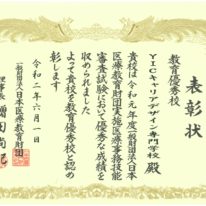 表彰状
教育優秀校
YICキャリアデザイン専門学校 殿
貴校は令和元年度一般財団法人日本
医療教育財団実施医療事務技能
審査試験において優秀な成績を
収められました
よって貴校を教育優秀校と認め
彰します
令和二年六月一日
一般財団法人日本医療教育財団
理事長